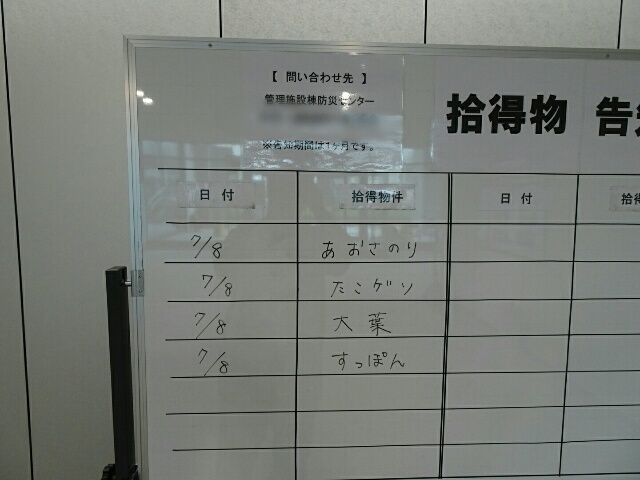 【 問い合わせ先 】
管理施設棟防災センター
※告知期間は1ヶ月です。
拾得物 告知
日付 拾得物件 日付 拾得
7/8 あおさのり
7/8 たこゲソ
7/8 大葉
7/8 すっぽん